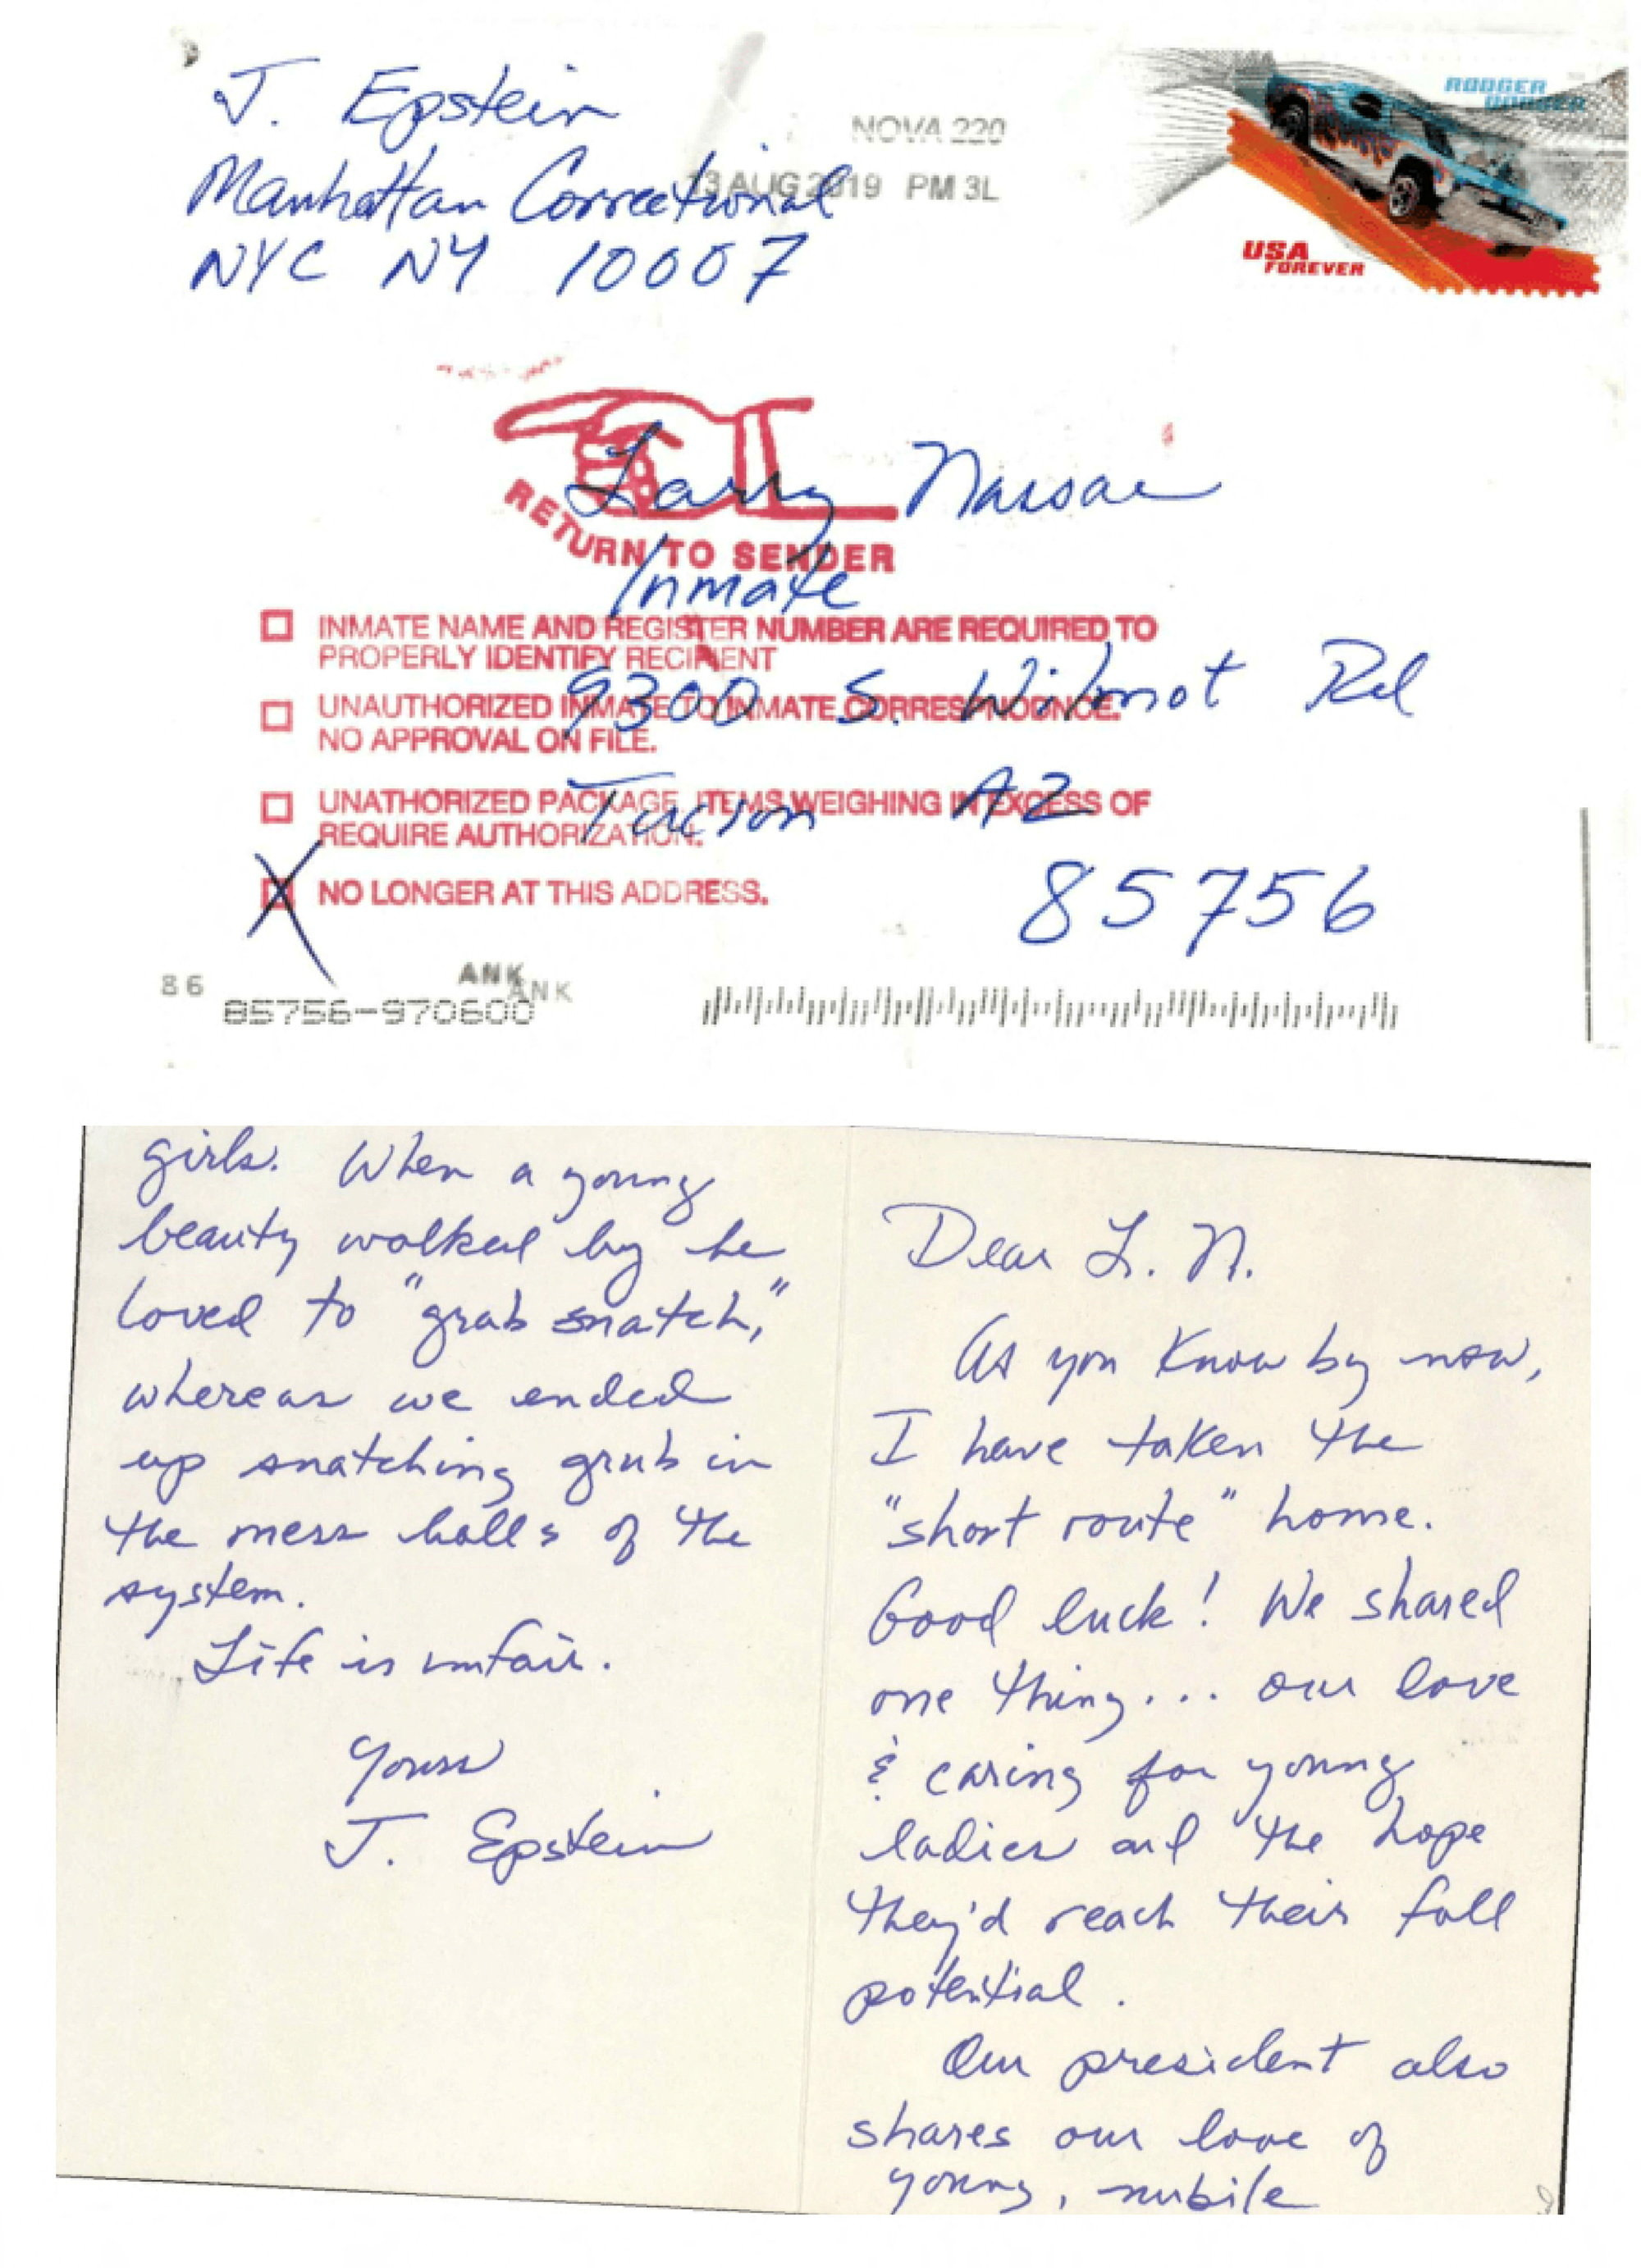 J. Epstein
Manhattan Correctional
NYC NY 10007
NOVA 220
13 AUG 2019 PM 3L
RODGER
DODGER
USA
FOREVER
Larry Nassar
Inmate
9300 S. Wilmot Rd
Tucson AZ
85756
RETURN TO SENDER
INMATE NAME AND REGISTER NUMBER ARE REQUIRED TO
PROPERLY IDENTIFY RECIPIENT
UNAUTHORIZED INMATE TO INMATE CORRESPNODNCE.
NO APPROVAL ON FILE.
UNATHORIZED PACKAGE, ITEMS WEIGHING IN EXCESS OF
REQUIRE AUTHORIZATION.
X NO LONGER AT THIS ADDRESS.
86
ANK
ANK
85756-970600
Dear L. N.
As you know by now,
I have taken the
"short route" home.
Good luck! We shared
one thing... our love
& caring for young
ladies and the hope
they'd reach their full
potential.
Our president also
shares our love of
young, nubile
girls. When a young
beauty walked by he
loved to "grab snatch,"
whereas we ended
up snatching grub in
the mess halls of the
system.
Life is unfair.
Yours
J. Epstein